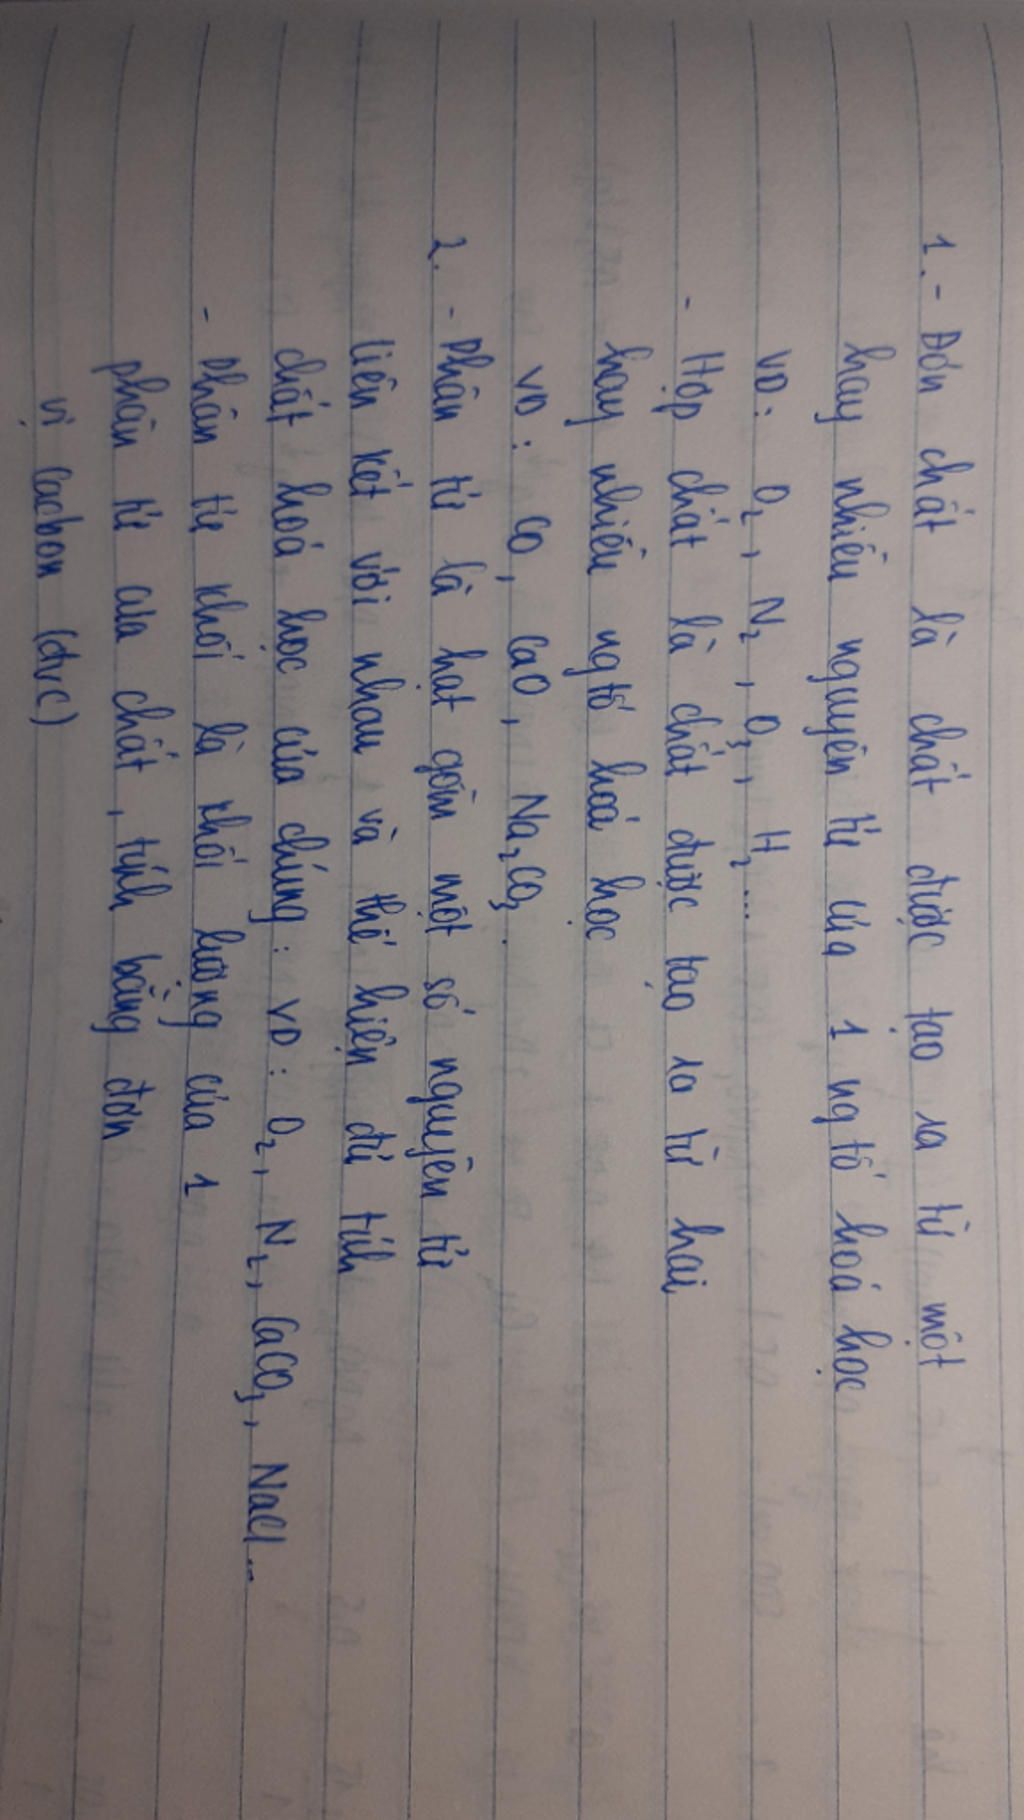 1. - Đơn chất là chất được tạo ra từ một
hay nhiều nguyên tử của 1 ng tố hoá học
VD: O₂, N₂, O₃, H₂...
- Hợp chất là chất được tạo ra từ hai
hay nhiều ng tố hoá học
VD: CO, CaO, Na₂CO₃.
2. - Phân tử là hạt gồm một số nguyên tử
liên kết với nhau và thể hiện đủ tính
chất hoá học của chúng: VD: O₂, N₂, CaCO₃, NaCl...
- Phân tử khối là khối lượng của 1
phân tử của chất, tính bằng đơn
vị cacbon (đvC)